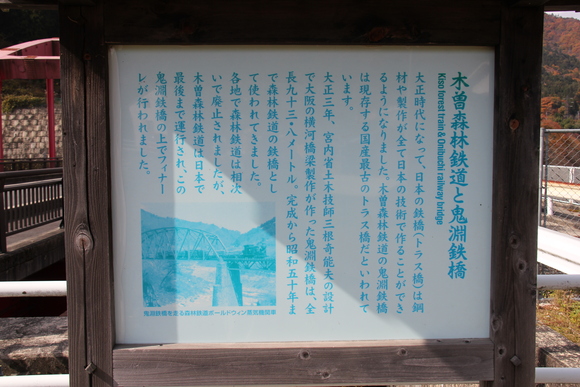 木曽森林鉄道と鬼淵鉄橋
Kiso forest train & Onibuchi railway bridge
大正時代になって、日本の鉄橋(トラス橋)は鋼
材や製作が全て日本の技術で作ることができ
るようになりました。木曽森林鉄道の鬼淵鉄橋
は現存する国産最古のトラス橋だといわれて
います。
大正三年、宮内省土木技師三根奇能夫の設計
で大阪の横河橋梁製作が作った鬼淵鉄橋は、全
長九十三・八メートル。完成から昭和五十年ま
で森林鉄道の鉄橋とし
て使われてきました。
各地で森林鉄道は相次
いで廃止されましたが、
木曽森林鉄道は日本で
最後まで運行され、この
鬼淵鉄橋の上でフィナー
レが行われました。
鬼淵鉄橋を走る森林鉄道ボールドウィン蒸気機関車